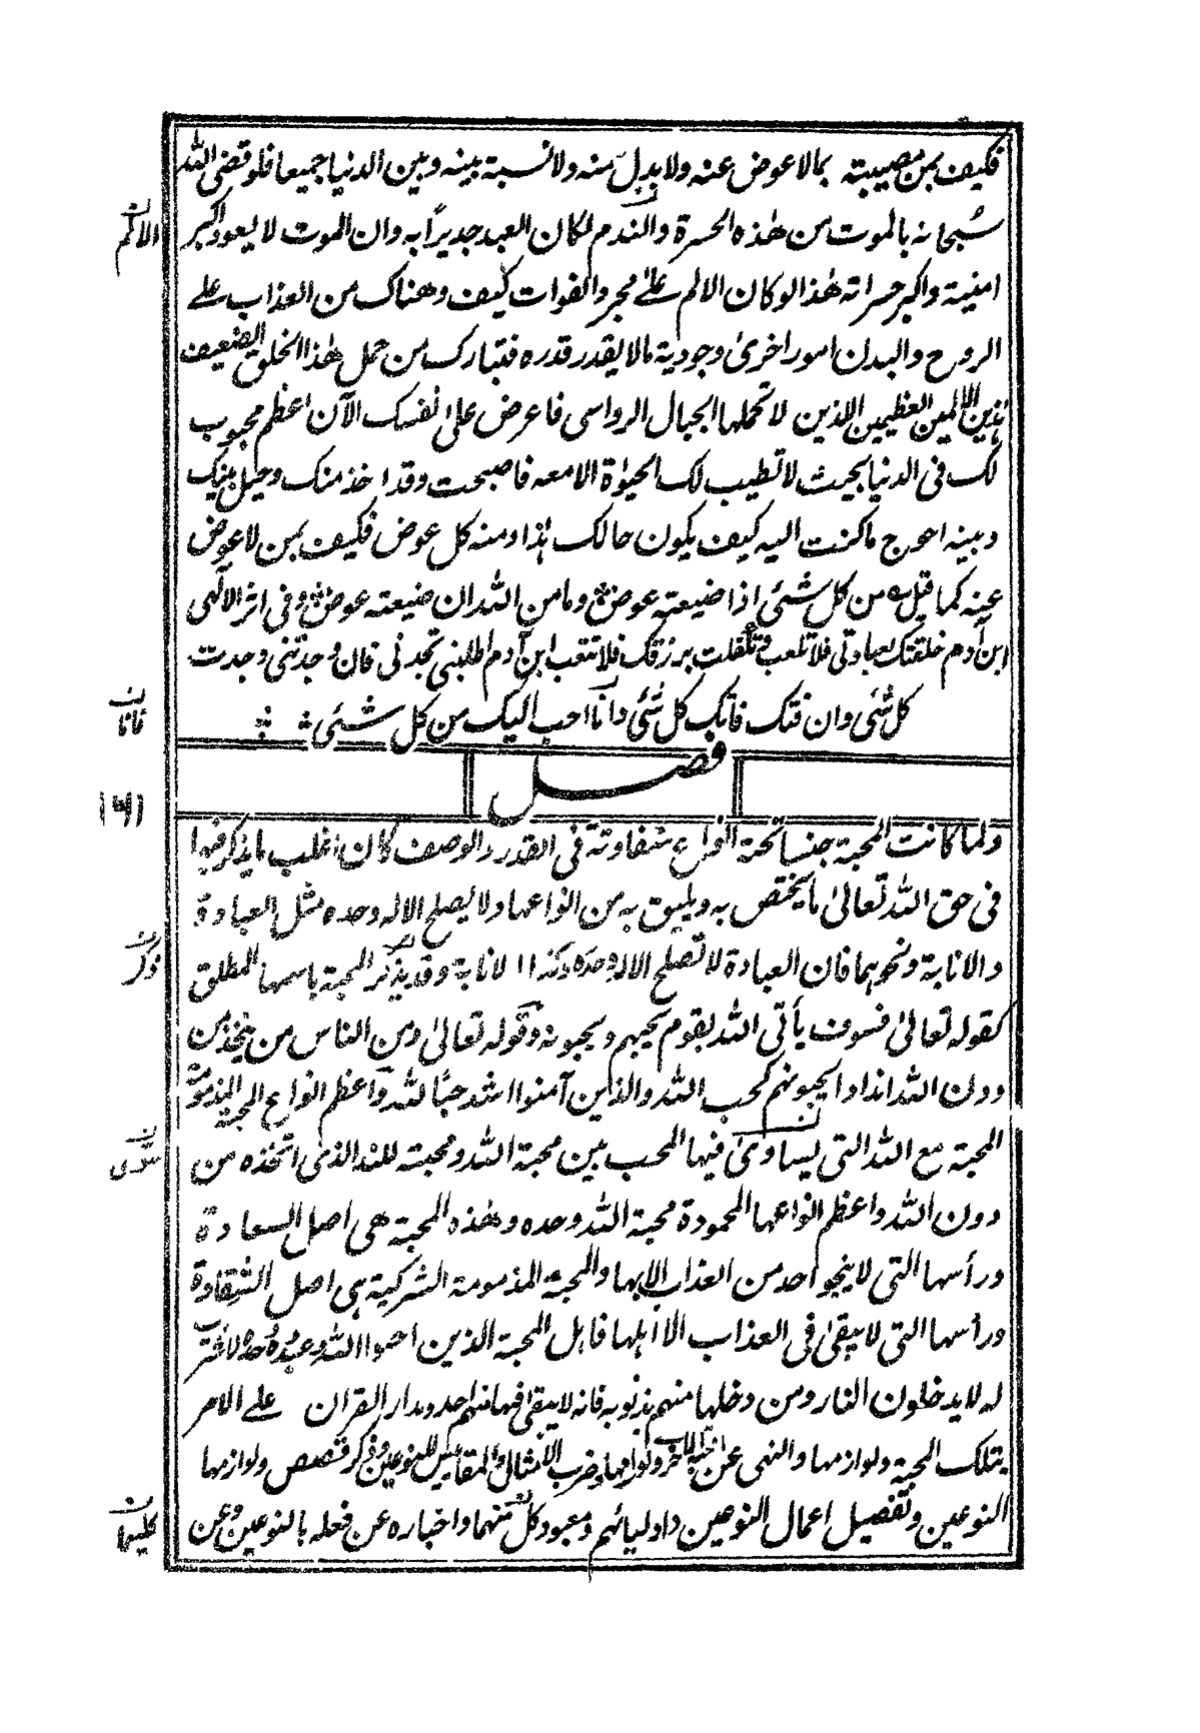 فكيف بمن مصيبته بما لا عوض عنه ولا بدل منه ولا نسبة بينه وبين الدنيا جميعا فلو قضى الله
سُبحانه بالموت من هٰذه الحسرة والندم لكان العبد جديراً به وان الموت لا يعود اكبر
الالم ن
امنيته واكبر حسراته هٰذا لو كان الالم علىٰ مجرد الفوات كيف وهناك من العذاب علے
الروح والبدن امور اخرىٰ وجودية مالا يقدر قدره فتبارك من حمل هٰذا الخلق الضعيف
هٰذين الالمين العظيمين اللذين لا تحملها الجبال الرواسى فاعرض علىٰ نفسك الآن اعظم محبوب
لك فى الدنيا بحيث لا تطيب لك الحيوٰة الا معه فاصبحت وقد اخذ منك وحيل بينك
وبينه احوج ما كنت اليه كيف يكون حالك هٰذا ومنه كل عوض فكيف بمن لا عوض
عنه كما قيل ه من كل شئى اذا ضيعته عوض ؞ وما من الله ان ضيعته عوض ؞ وفى اثر الآلهى
ابن آدم خلقتك لعبادتى فلا تلعب وتكفلت برزقك فلا تتعب ابن آدم اطلبنى تجدنى فان وجدتنى وجدت
كل شئى وان فتك فاتك كل شئى وانا احب اليك من كل شئى ؞ ؞
فانا ن
فصل
(٦)
ولما كانت المحبة جنسا تحته انواع متفاوتة فى القدر والوصف كان اغلب ما يذكر فيها
فى حق الله تعالىٰ ما يختص به ويليق به من انواعها ولا يصلح الا له وحده مثل العبادة
والانابة ونحوهما فان العبادة لا تصلح الا له وحده وكذا الانابة وقد يذكر المحبة باسمها المطلق
ذكر ن
كقوله تعالىٰ فسوف يأتى الله بقوم يحبهم ويحبونه وقوله تعالىٰ ومن الناس من يتخذ من
دون الله انداداً يحبونهم كحب الله والذين آمنوا اشد حبًّا لله واعظم انواع المحبة المذمومة
المحبة مع الله التى يساوىٰ فيها المحب بين محبة الله ومحبته للند الذى اتخذه من
سوّى ن
دون الله واعظم انواعها المحمودة محبة الله وحده وهٰذه المحبة هى اصل السعادة
ورأسها التى لا ينجو احد من العذاب الا بها والمحبة المذمومة الشركية هى اصل الشقاوة
ورأسها التى لا يبقىٰ فى العذاب الا اهلها فاهل المحبة الذين احبوا الله وعبدوه وحده لا شريك
له لا يدخلون النار ومن دخلها منهم بذنوبه فانه لا يبقىٰ فيها منهم احد ومدار القران علے الامر
بتلك المحبة ولوازمها والنهى عن المحبة الاخرىٰ ولوازمها وضرب الامثال والمقاييس للنوعين وذكر قصص ولوازمها
النوعين وتفصيل اعمال النوعين واوليائهم ومعبود كل منهما واخباره عن فعله بالنوعين وعن
كليهما ن